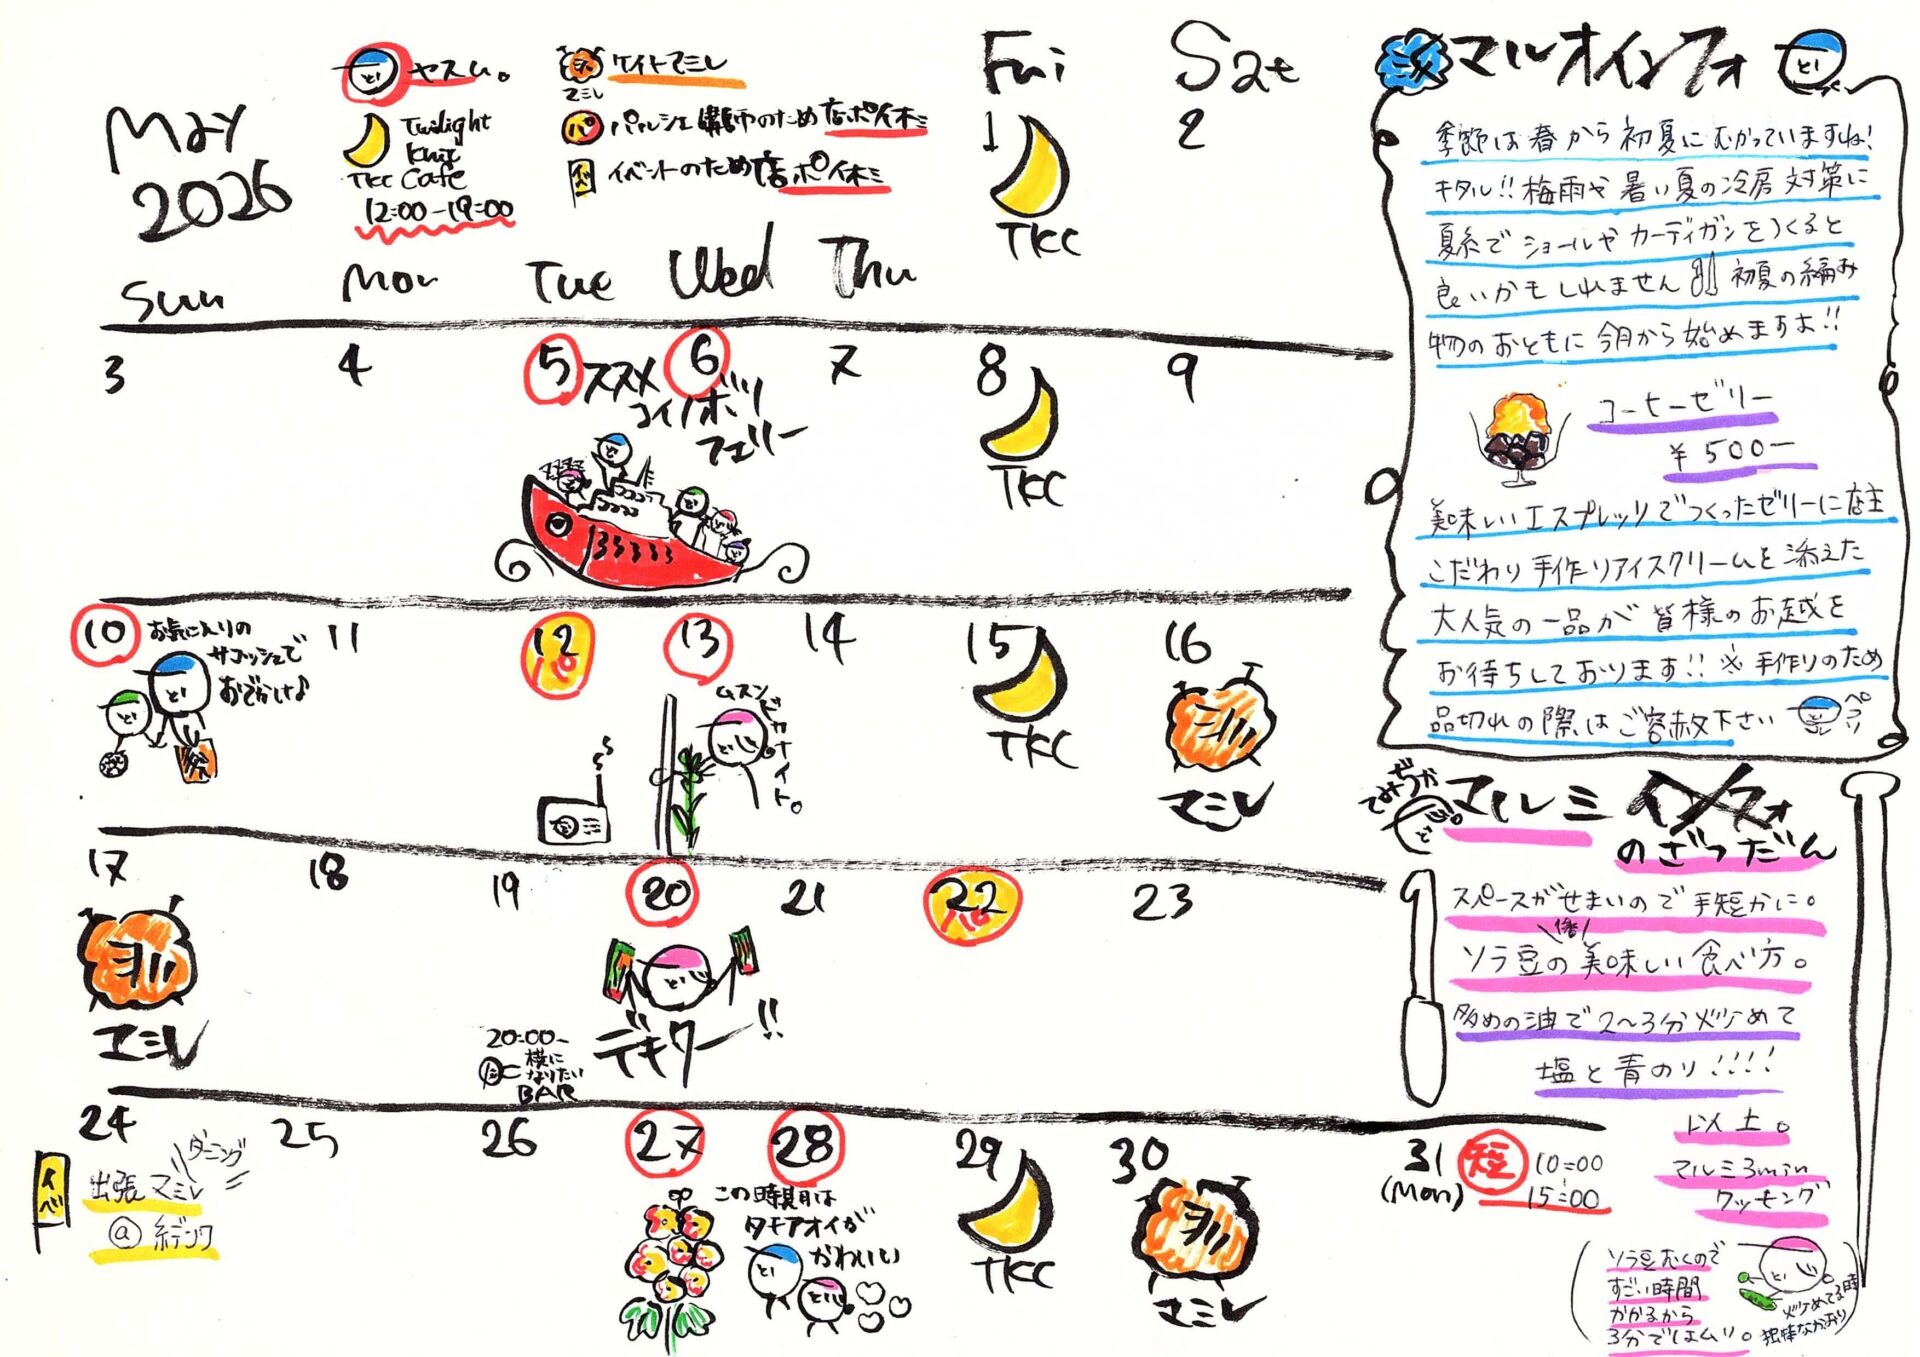 May
2026
ヤスム。
Twilight
Knit
TKC Cafe
12:00-19:00
ケイトマミレ
マミレ
パ パルシェ 催事のため店ポイ休ミ
イベ イベントのため店ポイ休ミ
Sun Mon Tue Wed Thu Fri Sat
1 TKC
2
3
4
5 ススメ
コイノボリ
フェリー
6
7
8 TKC
9
10 お気に入りの
サコッシュで
おでかけ♪
11
12 パ
13
ムスンビカナイト。
14
15 TKC
16
マミレ
17
マミレ
18
19
20:00-
横に
なりたい
BAR
20
デキター!!
21
22 パ
23
24
イベ
ダーニング
出張マミレ
@糸デンワ
25
26
27
28
この時期は
タチアオイが
かわいい
29 TKC
30
マミレ
31
(Mon)
短 10:00
15:00
マルオインフォ
季節は春から初夏にむかっていますね!
キタル!!梅雨や暑い夏の冷房対策に
夏糸でショールやカーディガンをつくると
良いかもしれません 初夏の編み
物のおともに今月から始めますよ!!
コーヒーゼリー
¥500-
美味しいエスプレッソでつくったゼリーに店主
こだわり手作りアイスクリームを添えた
大人気の一品が皆様のお越を
お待ちしております!!※手作りのため
品切れの際はご容赦下さい
ペコリ
てみぢか
マルミ インフォ
のざつだん
スペースがせまいので手短かに。
ソラ豆の美味しい食べ方。
多めの油で2~3分炒めて
塩と青のり!!!!
以上。
マルミ3min
クッキング
ソラ豆むくので
すごい時間
かかるから
3分ではムリ。
炒めてる時
独特なかおり